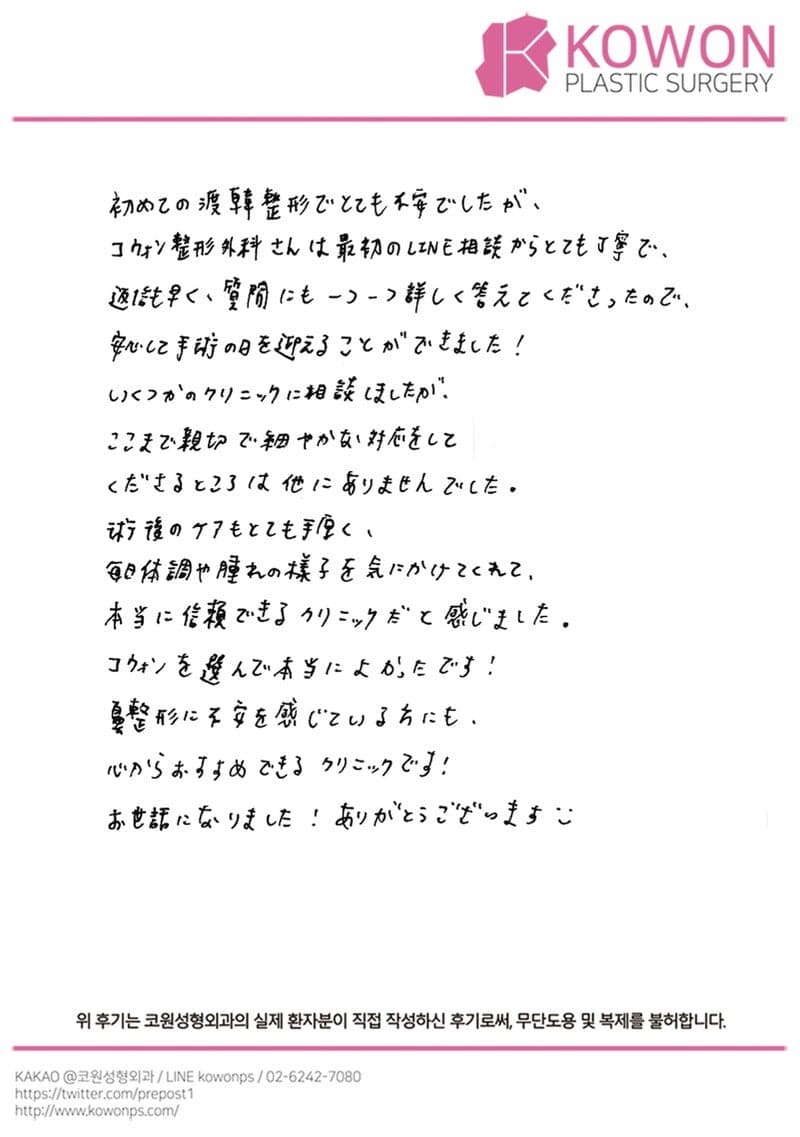 KOWON
PLASTIC SURGERY
初めての渡韓整形でとても不安でしたが、
コウォン整形外科さんは最初のLINE相談からとても丁寧で、
返信も早く、質問にも一つ一つ詳しく答えてくださったので、
安心して手術の日を迎えることができました!
いくつかのクリニックに相談しましたが、
ここまで親切で細やかな対応をして
くださるところは他にありませんでした。
術後のケアもとても手厚く、
毎日体調や腫れの様子を気にかけてくれて、
本当に信頼できるクリニックだと感じました。
コウォンを選んで本当によかったです!
鼻整形に不安を感じている方にも、
心からおすすめできるクリニックです!
お世話になりました!ありがとうございます
위 후기는 코원성형외과의 실제 환자분이 직접 작성하신 후기로써, 무단도용 및 복제를 불허합니다.
KAKAO @코원성형외과 / LINE kowonps / 02-6242-7080
https://twitter.com/prepost1
http://www.kowonps.com/